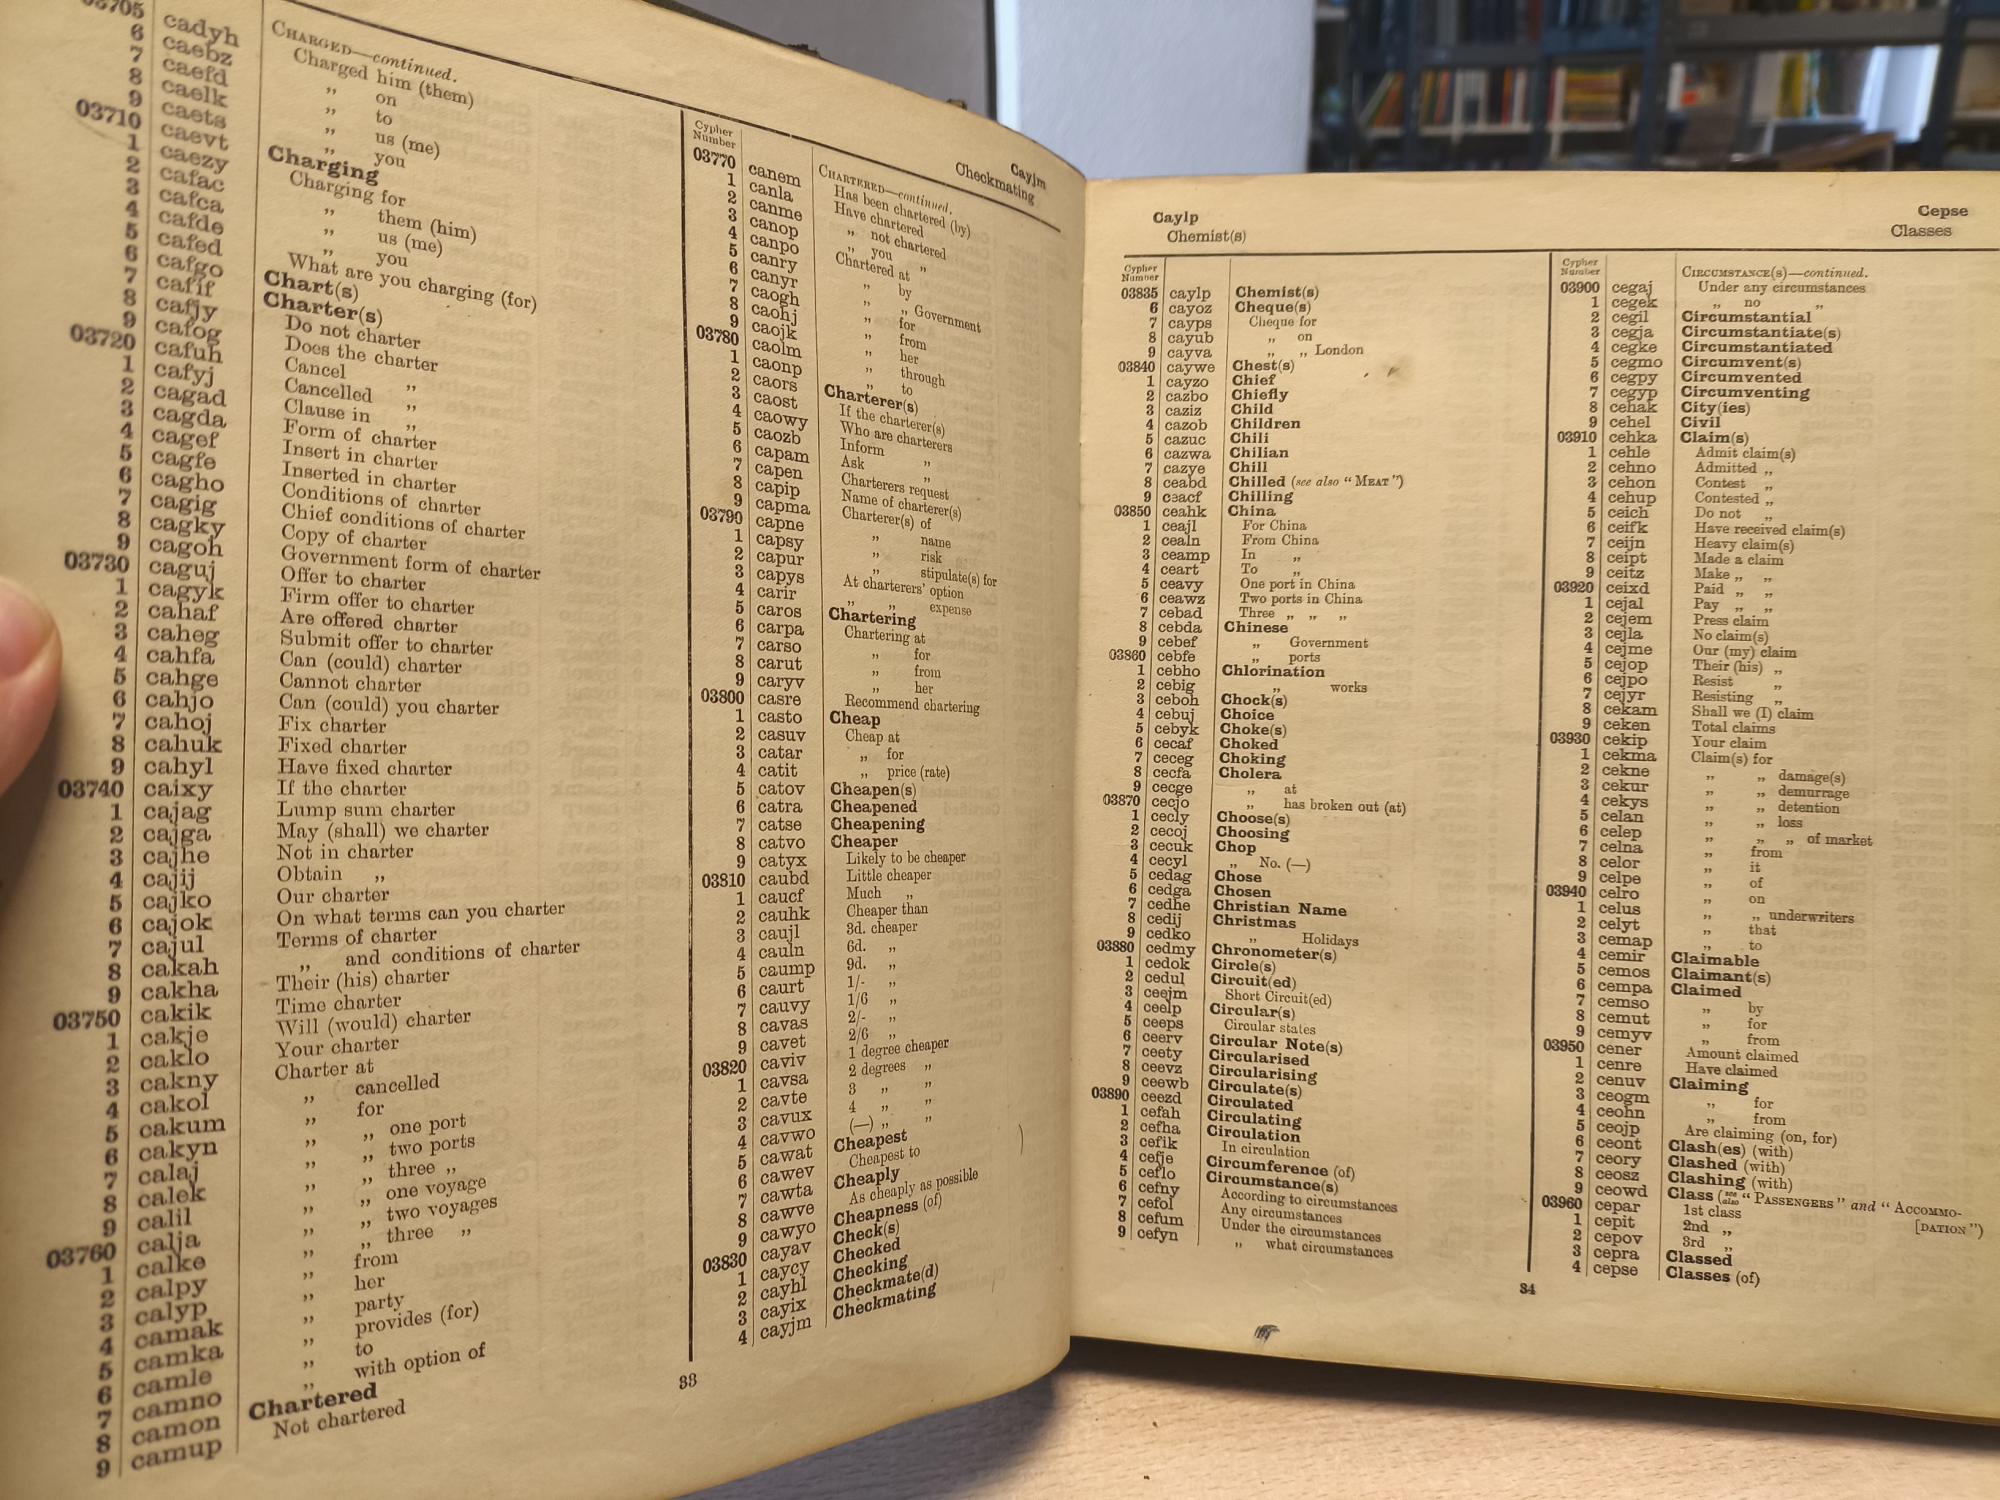 03705 cadyh CHARGED—continued. Charged him (them)
6 caebz „ on
7 caefd „ to
8 caelk „ us (me)
9 caets „ you
03710 caevt Charging
1 caezy Charging for
2 cafac „ them (him)
3 cafca „ us (me)
4 cafde „ you
5 cafed What are you charging (for)
6 cafgo Chart(s)
7 cafif Charter(s)
8 cafjy Do not charter
9 cafog Does the charter
03720 cafuh Cancel „
1 cafyj Cancelled „
2 cagad Clause in „
3 cagda Form of charter
4 cagef Insert in charter
5 cagfe Inserted in charter
6 cagho Conditions of charter
7 cagig Chief conditions of charter
8 cagky Copy of charter
9 cagoh Government form of charter
03730 caguj Offer to charter
1 cagyk Firm offer to charter
2 cahaf Are offered charter
3 caheg Submit offer to charter
4 cahfa Can (could) charter
5 cahge Cannot charter
6 cahjo Can (could) you charter
7 cahoj Fix charter
8 cahuk Fixed charter
9 cahyl Have fixed charter
03740 caixy If the charter
1 cajag Lump sum charter
2 cajga May (shall) we charter
3 cajhe Not in charter
4 cajij Obtain „
5 cajko Our charter
6 cajok On what terms can you charter
7 cajul Terms of charter
8 cakah „ and conditions of charter
9 cakha Their (his) charter
03750 cakik Time charter
1 cakje Will (would) charter
2 caklo Your charter
3 cakny Charter at
4 cakol „ cancelled
5 cakum „ for
6 cakyn „ „ one port
7 calaj „ „ two ports
8 calek „ „ three „
9 calil „ „ one voyage
03760 calja „ „ two voyages
1 calke „ „ three „
2 calpy „ from
3 calyp „ her
4 camak „ party
5 camka „ provides (for)
6 camle „ to
7 camno „ with option of
8 camon Chartered
9 camup Not chartered
Cayjm
Checkmating
Cypher Number
CHARTERED—continued.
03770 canem Has been chartered (by)
1 canla Have chartered
2 canme „ not chartered
3 canop „ you „
4 canpo Chartered at
5 canry „ by
6 canyr „ „ Government
7 caogh „ for
8 caohj „ from
9 caojk „ her
03780 caolm „ through
1 caonp „ to
2 caors Charterer(s)
3 caost If the charterer(s)
4 caowy Who are charterers
5 caozb Inform „
6 capam Ask „
7 capen Charterers request
8 capip Name of charterer(s)
9 capma Charterer(s) of
03790 capne „ name
1 capsy „ risk
2 capur „ stipulate(s) for
3 capys At charterers' option
4 carir „ „ expense
5 caros Chartering
6 carpa Chartering at
7 carso „ for
8 carut „ from
9 caryv „ her
03800 casre Recommend chartering
1 casto Cheap
2 casuv Cheap at
3 catar „ for
4 catit „ price (rate)
5 catov Cheapen(s)
6 catra Cheapened
7 catse Cheapening
8 catvo Cheaper
9 catyx Likely to be cheaper
03810 caubd Little cheaper
1 caucf Much „
2 cauhk Cheaper than
3 caujl 3d. cheaper
4 cauln 6d. „
5 caump 9d. „
6 caurt 1/- „
7 cauvy 1/6 „
8 cavas 2/- „
9 cavet 2/6 „
03820 caviv 1 degree cheaper
1 cavsa 2 degrees „
2 cavte 3 „ „
3 cavux 4 „ „
4 cavwo (—) „ „
5 cawat Cheapest
6 cawev Cheapest to
7 cawta Cheaply
8 cawve As cheaply as possible
9 cawyo Cheapness (of)
03830 cayav Check(s)
1 caycy Checked
2 cayhl Checking
3 cayix Checkmate(d)
4 cayjm Checkmating
33
Caylp
Chemist(s)
Cypher Number
03835 caylp Chemist(s)
6 cayoz Cheque(s)
7 cayps Cheque for
8 cayub „ on
9 cayva „ „ London
03840 caywe Chest(s)
1 cayzo Chief
2 cazbo Chiefly
3 caziz Child
4 cazob Children
5 cazuc Chili
6 cazwa Chilian
7 cazye Chill
8 ceabd Chilled (see also “ MEAT ”)
9 ceacf Chilling
03850 ceahk China
1 ceajl For China
2 cealn From China
3 ceamp In „
4 ceart To „
5 ceavy One port in China
6 ceawz Two ports in China
7 cebad Three „ „ „
8 cebda Chinese
9 cebef „ Government
03860 cebfe „ ports
1 cebho Chlorination
2 cebig „ works
3 ceboh Chock(s)
4 cebuj Choice
5 cebyk Choke(s)
6 cecaf Choked
7 ceceg Choking
8 cecfa Cholera
9 cecge „ at
03870 cecjo „ has broken out (at)
1 cecly Choose(s)
2 cecoj Choosing
3 cecuk Chop
4 cecyl „ No. (—)
5 cedag Chose
6 cedga Chosen
7 cedhe Christian Name
8 cedij Christmas
9 cedko „ Holidays
03880 cedmy Chronometer(s)
1 cedok Circle(s)
2 cedul Circuit(ed)
3 ceejm Short Circuit(ed)
4 ceelp Circular(s)
5 ceeps Circular states
6 ceerv Circular Note(s)
7 ceety Circularised
8 ceevz Circularising
9 ceewb Circulate(s)
03890 ceezd Circulated
1 cefah Circulating
2 cefha Circulation
3 cefik In circulation
4 cefje Circumference (of)
5 ceflo Circumstance(s)
6 cefny According to circumstances
7 cefol Any circumstances
8 cefum Under the circumstances
9 cefyn „ what circumstances
Cepse
Classes
Cypher Number
CIRCUMSTANCE(S)—continued.
03900 cegaj Under any circumstances
1 cegek „ no „
2 cegil Circumstantial
3 cegja Circumstantiate(s)
4 cegke Circumstantiated
5 cegmo Circumvent(s)
6 cegpy Circumvented
7 cegyp Circumventing
8 cehak City(ies)
9 cehel Civil
03910 cehka Claim(s)
1 cehle Admit claim(s)
2 cehno Admitted „
3 cehon Contest „
4 cehup Contested „
5 ceich Do not „
6 ceifk Have received claim(s)
7 ceijn Heavy claim(s)
8 ceipt Made a claim
9 ceitz Make „ „
03920 ceixd Paid „ „
1 cejal Pay „ „
2 cejem Press claim
3 cejla No claim(s)
4 cejme Our (my) claim
5 cejop Their (his) „
6 cejpo Resist „
7 cejyr Resisting „
8 cekam Shall we (I) claim
9 ceken Total claims
03930 cekip Your claim
1 cekma Claim(s) for
2 cekne „ „ damage(s)
3 cekur „ „ demurrage
4 cekys „ „ detention
5 celan „ „ loss
6 celep „ „ „ of market
7 celna „ from
8 celor „ it
9 celpe „ of
03940 celro „ on
1 celus „ „ underwriters
2 celyt „ that
3 cemap „ to
4 cemir Claimable
5 cemos Claimant(s)
6 cempa Claimed
7 cemso „ by
8 cemut „ for
9 cemyv „ from
03950 cener Amount claimed
1 cenre Have claimed
2 cenuv Claiming
3 ceogm „ for
4 ceohn „ from
5 ceojp Are claiming (on, for)
6 ceont Clash(es) (with)
7 ceory Clashed (with)
8 ceosz Clashing (with)
9 ceowd Class (see also “ PASSENGERS ” and “ ACCOMMO-
[DATION ”)
03960 cepar 1st class
1 cepit 2nd „
2 cepov 3rd „
3 cepra Classed
4 cepse Classes (of)
34